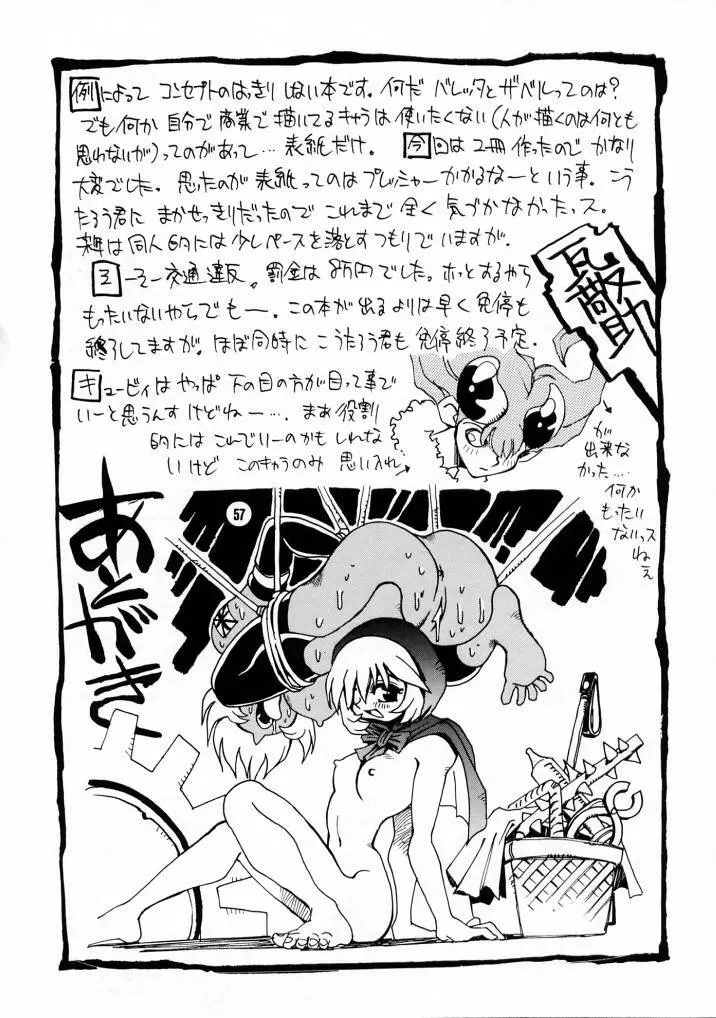 例によって コンセプトのはっきりしない本です。何だ バレッタとザベルってのは?
でも何か 自分で商業で描いてるキャラは使いたくない(人が描くのは何とも
思わないが)ってのがあって…表紙だけ。 今回は2冊作ったので かなり
大変でした。思ったのが表紙ってのはプレッシャーかかるなーという事。こう
たろう君に まかせっきりだったので これまで全く気づかなかったっス。
来年は同人的には少しペースを落とすつもりでいますが。
そー交通違反。罰金は8万円でした。ホッとするやら
もったいないやらでもー。この本が出るよりは早く免停も
終了してますが。ほぼ同時にこうたろう君も免停終了予定.
キュービィはやっぱ 下の目の方が目って事で
いーと思うんすけどねー…. まあ役割
的にはこれでいーのかもしれな
いけど このキャラのみ 思い入れ
が
出来な
かった….
何か
もったい
ないっス
ねぇ
あとがき
57